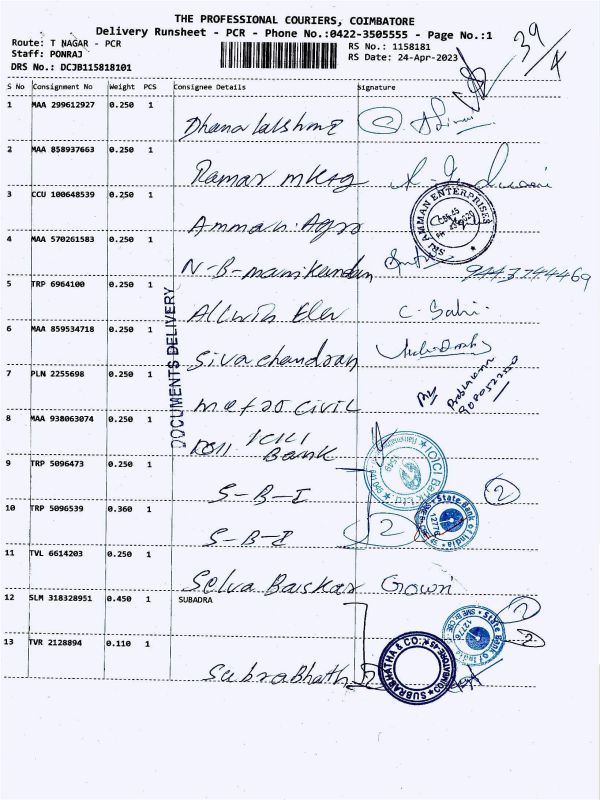 THE PROFESSIONAL COURIERS, COIMBATORE
Delivery Runsheet - PCR - Phone No.:0422-3505555 - Page No.:1
Route: T NAGAR - PCR
Staff: PONRAJ
DRS No.: DCJB115818101
RS No.: 1158181
RS Date: 24-Apr-2023
39/4
S No Consignment No Weight PCS Consignee Details Signature
1 MAA 299612927 0.250 1
Dhanalakshmi
2 MAA 858937663 0.250 1
Ramar mktg
3 CCU 100648539 0.250 1
Amman Agro
SRI AMMAN ENTERPRISES
4 MAA 570261583 0.250 1
N-B-manikandan 9443744469
5 TRP 6964100 0.250 1
Allwin Elec C. Sabi
6 MAA 859534718 0.250 1
Siva chandran
DOCUMENTS DELIVERY
7 PLN 2255698 0.250 1
metro civil
8 MAA 938063074 0.250 1
ICICI
Bank
ICICI Bank Ltd
9 TRP 5096473 0.250 1
S-B-I 2
10 TRP 5096539 0.360 1
S-B-I 2
State Bank of India
12776
11 TVL 6614203 0.250 1
Selva Baskar Gowri
12 SLM 318328951 0.450 1 SUBADRA
2
State Bank of India
12776
2
13 TVR 2128894 0.110 1
Subrabhath
SUBRABMATHA & CO.
COIMBATORE-45